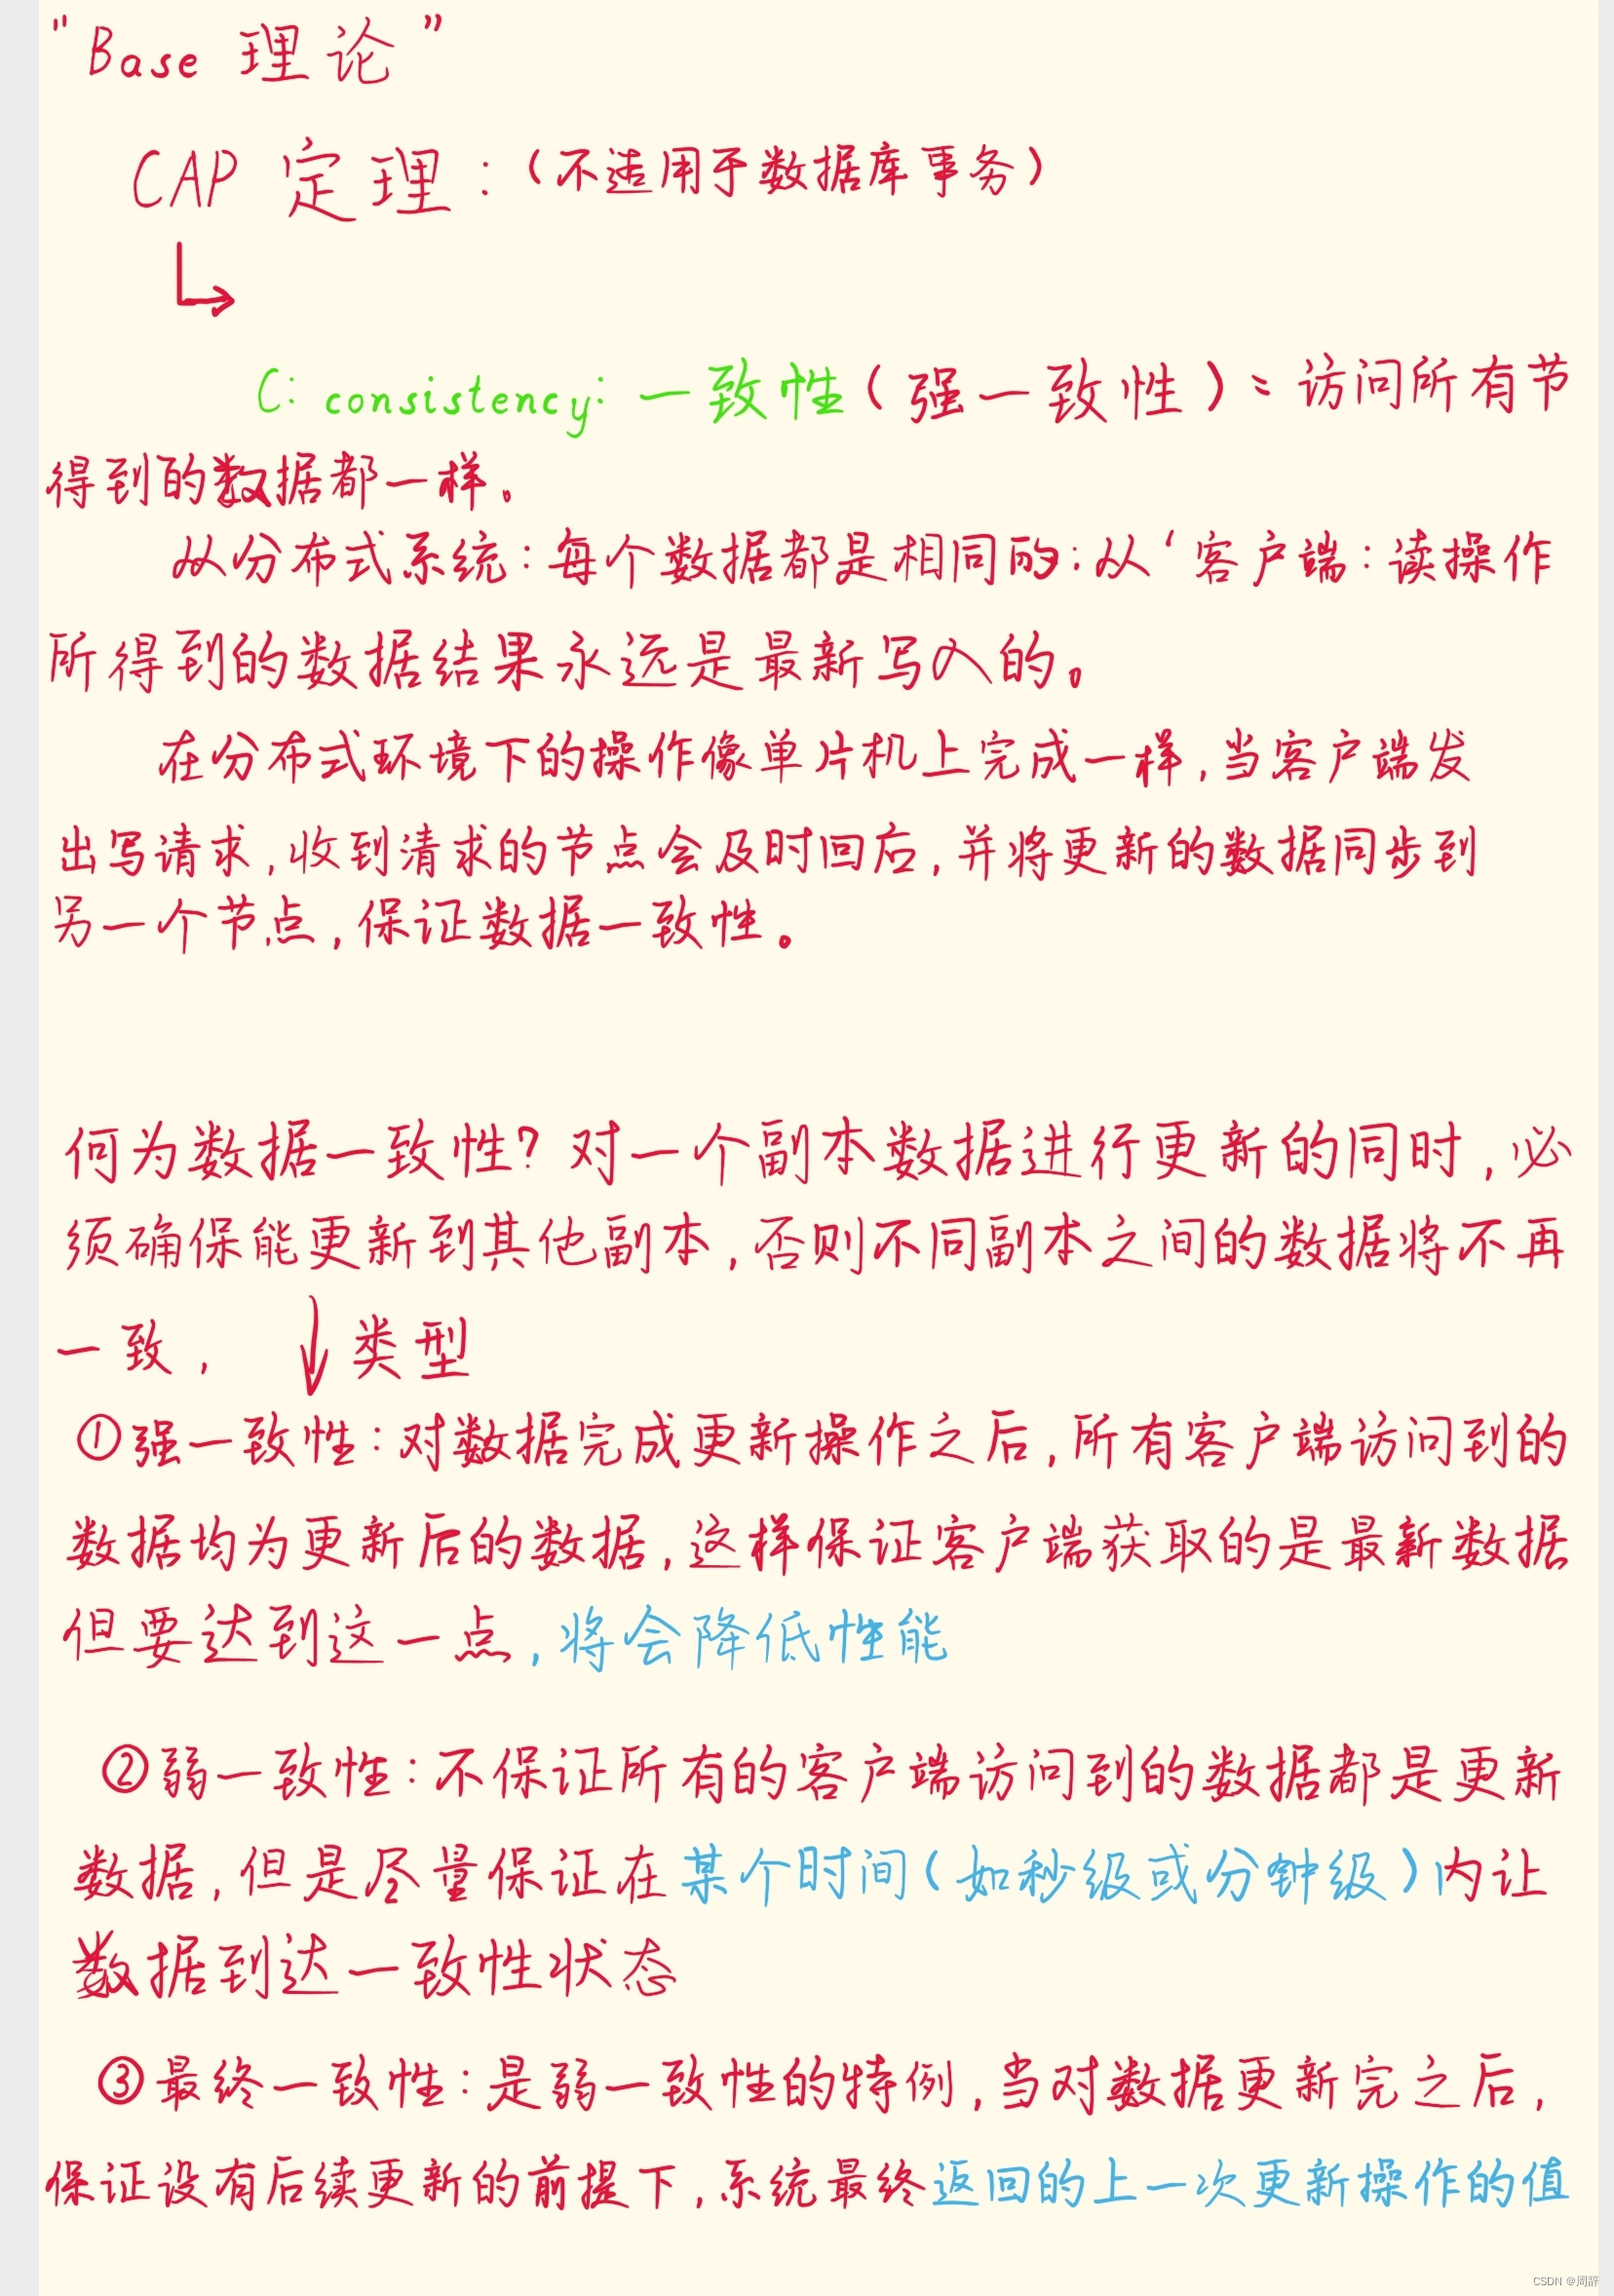 "Base 理论"
CAP 定理:(不适用于数据库事务)
C: consistency: 一致性(强一致性): 访问所有节
得到的数据都一样。
从分布式系统:每个数据都是相同的;从‘客户端:读操作
所得到的数据结果永远是最新写入的。
在分布式环境下的操作像单片机上完成一样,当客户端发
出写请求,收到请求的节点会及时回后,并将更新的数据同步到
另一个节点,保证数据一致性。
何为数据一致性?对一个副本数据进行更新的同时,必
须确保能更新到其他副本,否则不同副本之间的数据将不再
一致, 类型
①强一致性:对数据完成更新操作之后,所有客户端访问到的
数据均为更新后的数据,这样保证客户端获取的是最新数据
但要达到这一点,将会降低性能
②弱一致性:不保证所有的客户端访问到的数据都是更新
数据,但是尽量保证在某个时间(如秒级或分钟级)内让
数据到达一致性状态
③最终一致性:是弱一致性的特例,当对数据更新完之后,
保证设有后续更新的前提下,系统最终返回的上一次更新操作的值
CSDN @周辞